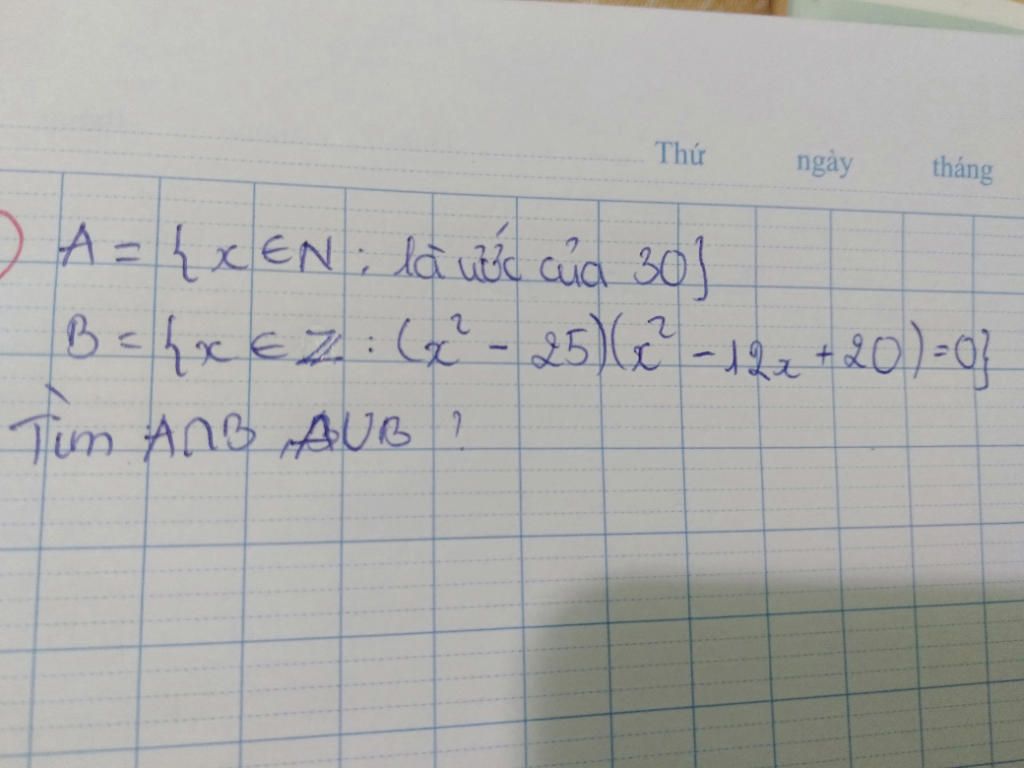 Thứ ngày tháng
A = { x ∈ N : là ước của 30}
B = {x ∈ Z : (x² - 25)(x² - 12x + 20) = 0}
Tìm A∩B, A∪B ?